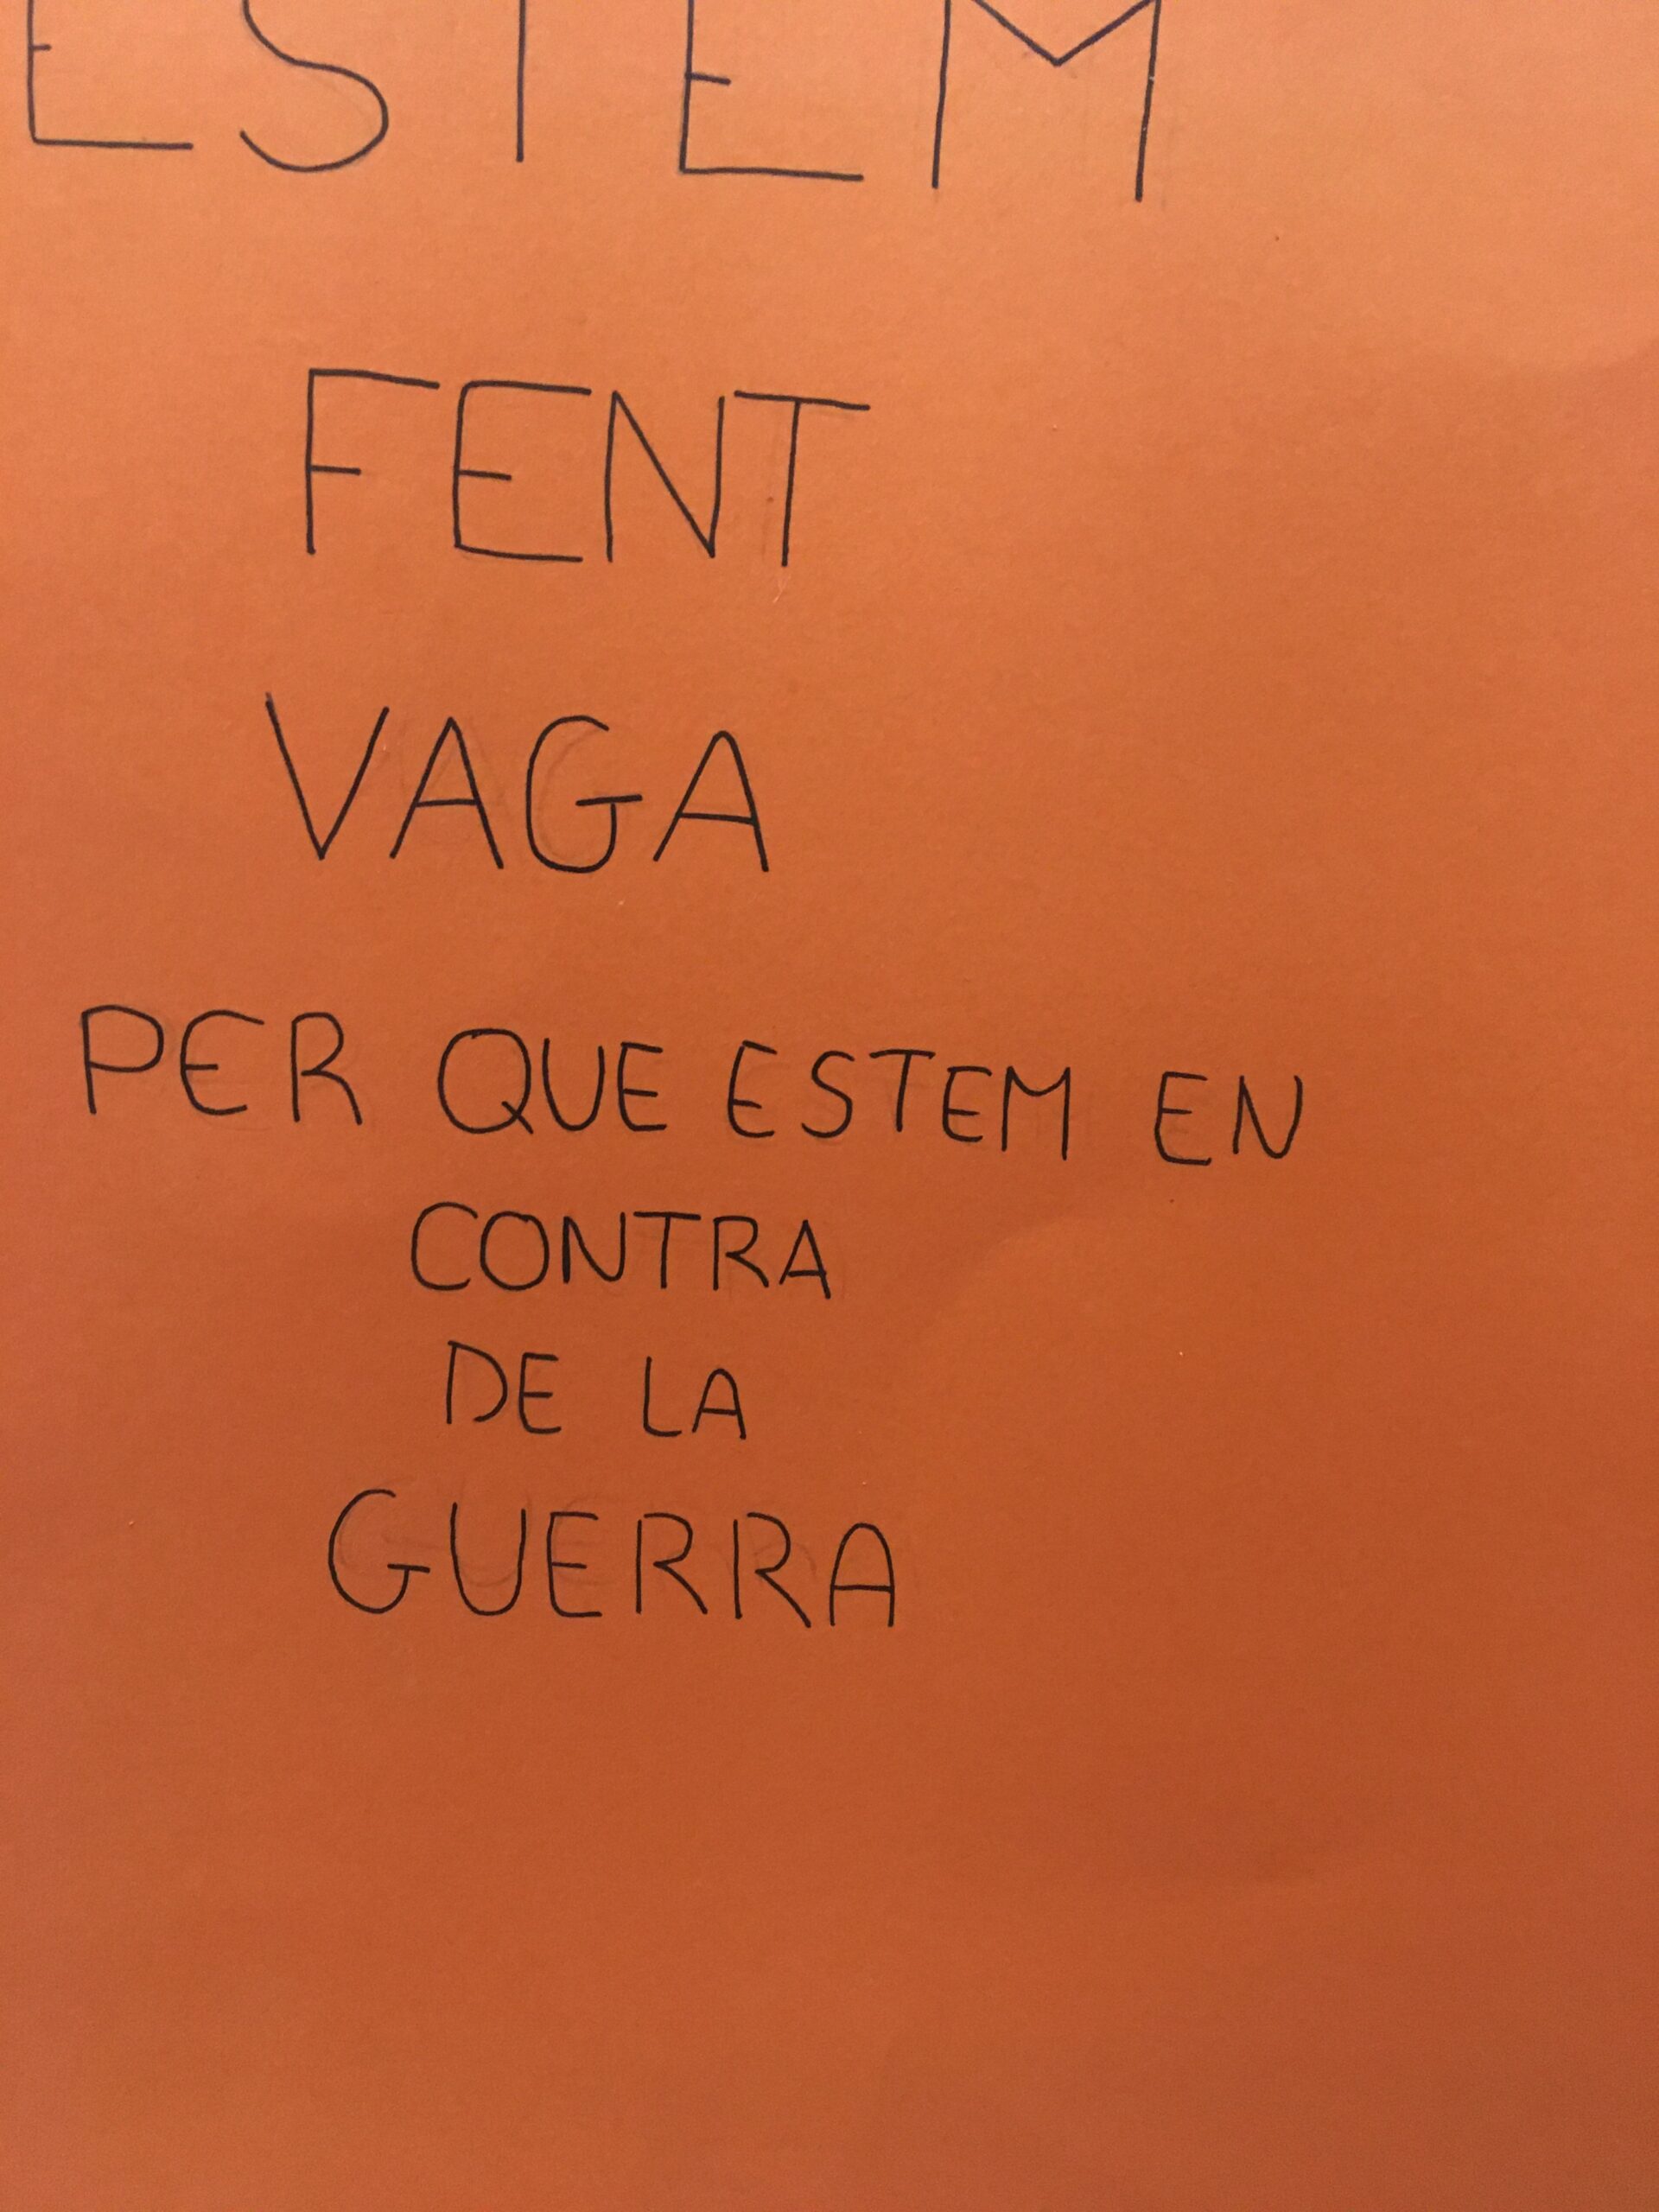 ESTEM
FENT
VAGA
PER QUE ESTEM EN
CONTRA
DE LA
GUERRA